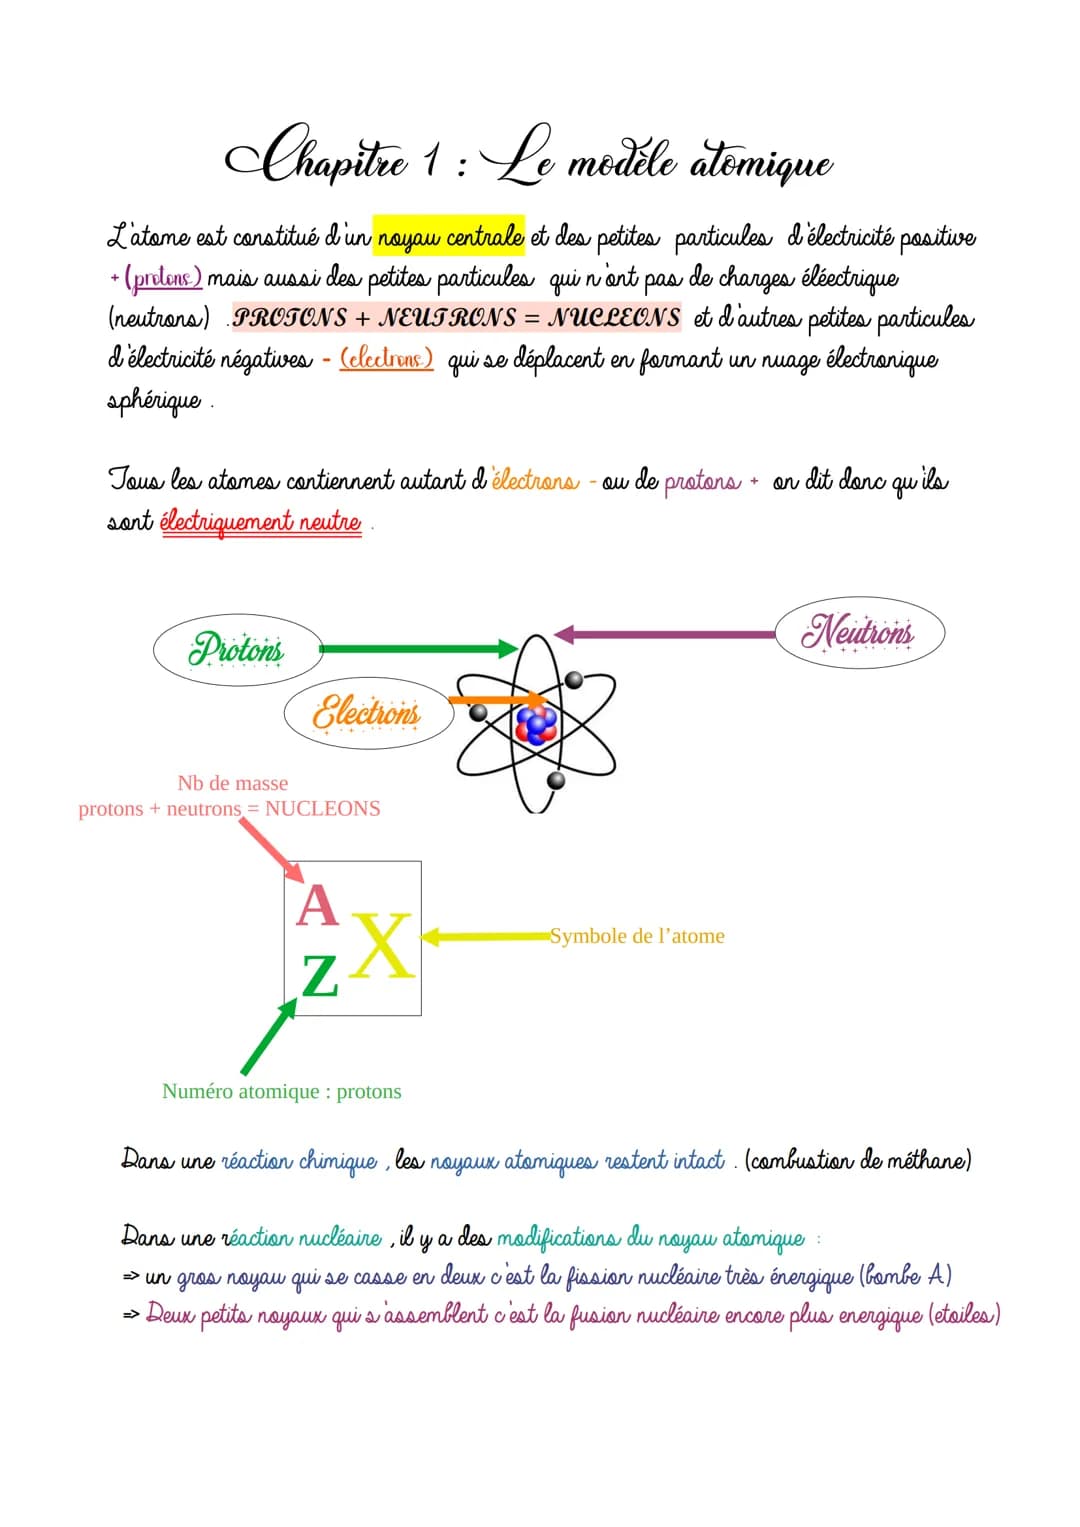 Chapitre 1 : Le modèle atomique
L'atome est constitué d'un noyau centrale et des petites particules d'électricité positive
+ (protons) mais aussi des petites particules qui n'ont pas de charges éléectrique
(neutrons) . PROTONS + NEUTRONS = NUCLEONS et d'autres petites particules
d'électricité négatives - (electrons) qui se déplacent en formant un nuage électronique
sphérique .
Tous les atomes contiennent autant d'électrons - ou de protons + on dit donc qu'ils
sont électriquement neutre .
Protons
Neutrons
Electrons
Nb de masse
protons + neutrons = NUCLEONS
A
X
Z
Symbole de l'atome
Numéro atomique : protons
Dans une réaction chimique , les noyaux atomiques restent intact . (combustion de méthane)
Dans une réaction nucléaire , il y a des modifications du noyau atomique :
=> un gros noyau qui se casse en deux c'est la fission nucléaire très énergique (bombe A)
=> Deux petits noyaux qui s'assemblent c'est la fusion nucléaire encore plus energique (etoiles)